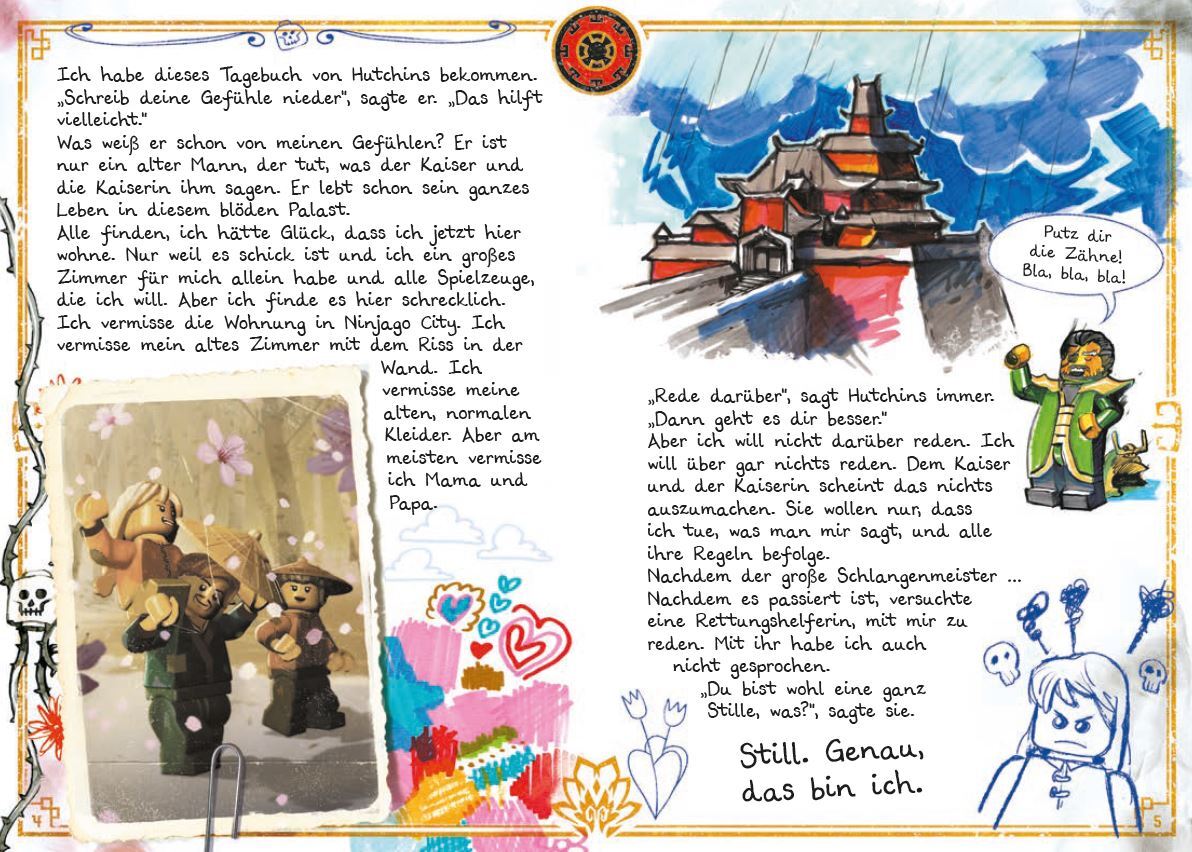 Ich habe dieses Tagebuch von Hutchins bekommen.
„Schreib deine Gefühle nieder", sagte er. „Das hilft
vielleicht."
Was weiß er schon von meinen Gefühlen? Er ist
nur ein alter Mann, der tut, was der Kaiser und
die Kaiserin ihm sagen. Er lebt schon sein ganzes
Leben in diesem blöden Palast.
Alle finden, ich hätte Glück, dass ich jetzt hier
wohne. Nur weil es schick ist und ich ein großes
Zimmer für mich allein habe und alle Spielzeuge,
die ich will. Aber ich finde es hier schrecklich.
Ich vermisse die Wohnung in Ninjago City. Ich
vermisse mein altes Zimmer mit dem Riss in der
Wand. Ich
vermisse meine
alten, normalen
Kleider. Aber am
meisten vermisse
ich Mama und
Papa.
4
Putz dir
die Zähne!
Bla, bla, bla!
„Rede darüber", sagt Hutchins immer.
„Dann geht es dir besser."
Aber ich will nicht darüber reden. Ich
will über gar nichts reden. Dem Kaiser
und der Kaiserin scheint das nichts
auszumachen. Sie wollen nur, dass
ich tue, was man mir sagt, und alle
ihre Regeln befolge.
Nachdem der große Schlangenmeister ...
Nachdem es passiert ist, versuchte
eine Rettungshelferin, mit mir zu
reden. Mit ihr habe ich auch
nicht gesprochen.
„Du bist wohl eine ganz
Stille, was?", sagte sie.
Still. Genau,
das bin ich.
5